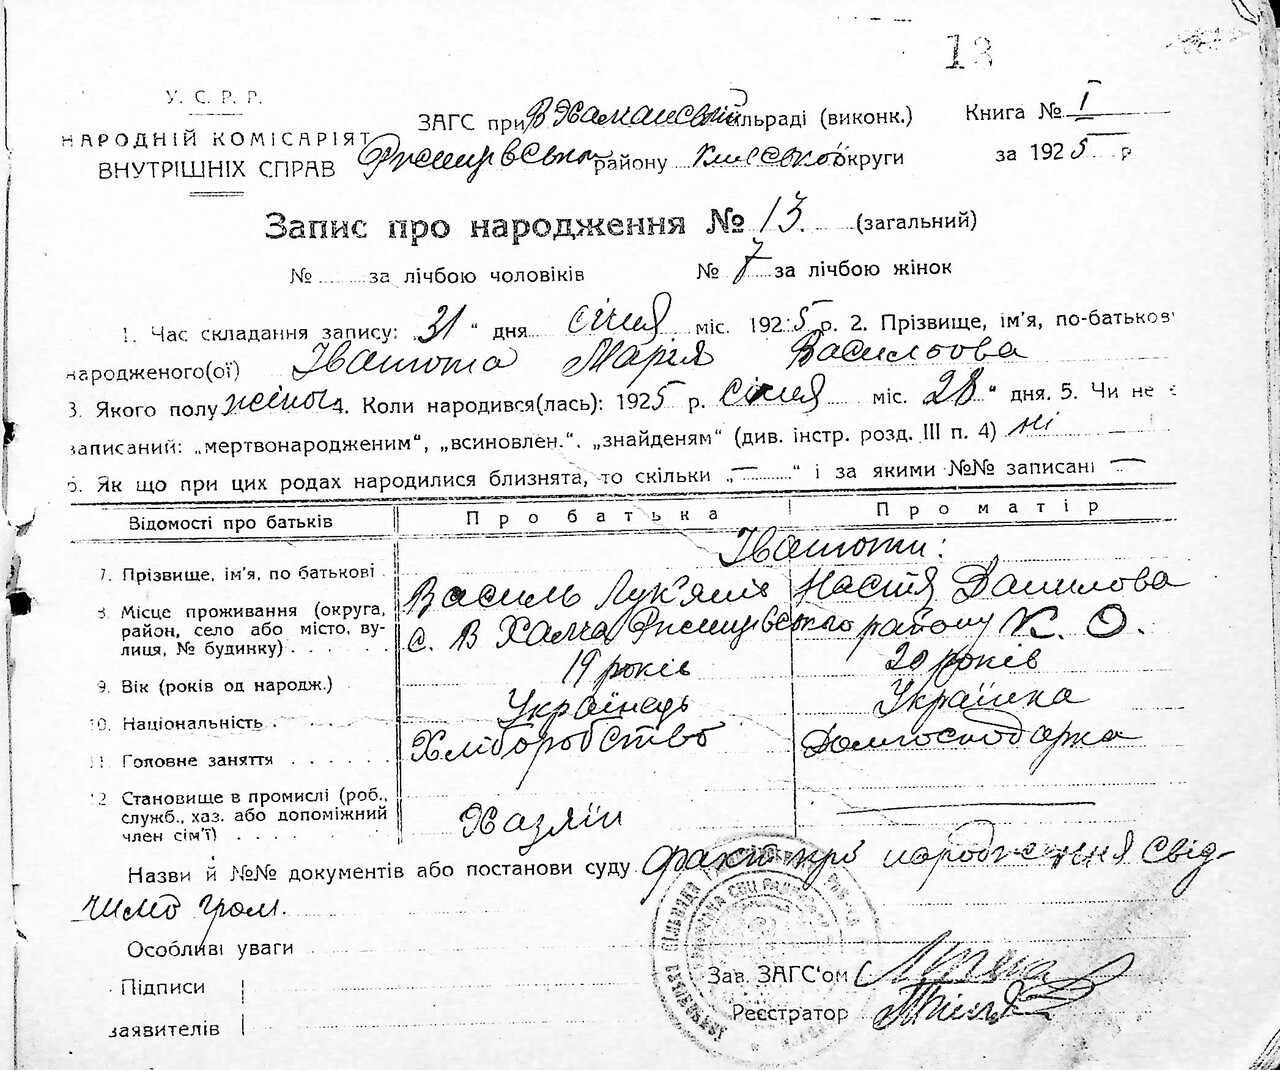 13
У. С. Р. Р.
НАРОДНІЙ КОМІСАРІЯТ
ВНУТРІШНІХ СПРАВ
ЗАГС при В Халчанській сільраді (виконк.)
Ржищівсько району Київської округи
Книга № I
за 1925 р
Запис про народження № 13. (загальний)
№ за лічбою чоловіків № 7 за лічбою жінок
1. Час складання запису: 31 " дня січня міс. 1925 р. 2. Прізвище, ім'я, по-батьков
народженого(ої) Івашота Марія Васильова
3. Якого полу жіноч 4. Коли народився(лась): 1925 р. січня міс. 28 " дня. 5. Чи не є
записаний: „мертвонародженим“, „всиновлен.“, „знайденям“ (див. інстр. розд. III п. 4) ні
6. Як що при цих родах народилися близнята, то скільки „—“ і за якими №№ записані —
Відомості про батьків Про батька Про матір
Івашоти:
7. Прізвище, ім'я, по батькові Василь Лук'янів Настя Данилова
8. Місце проживання (округа,
район, село або місто, ву-
лиця, № будинку) с. В Халча Ржищівського району К. О.
9. Вік (років од народж.) 19 років 20 років
10. Національність Українець Українка
11. Головне заняття Хліборобство Домгосподарка
12 Становище в промислі (роб.,
служб., хаз. або допоміжний
член сім'ї) Хазяїн
Назви й №№ документів або постанови суду Факт про народження свід-
чимо гром.
Особливі уваги
Підписи
заявителів
Зав. ЗАГС'ом
Реєстратор